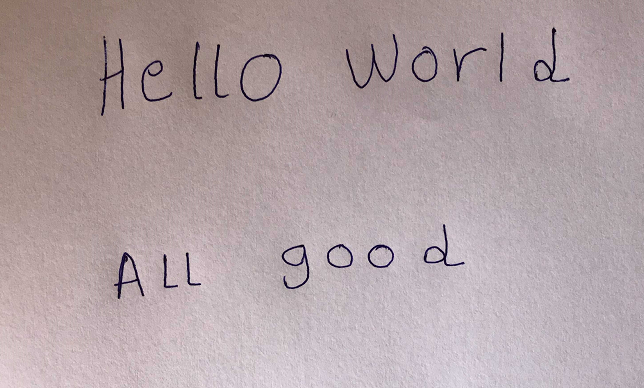 Hello World
ALL good